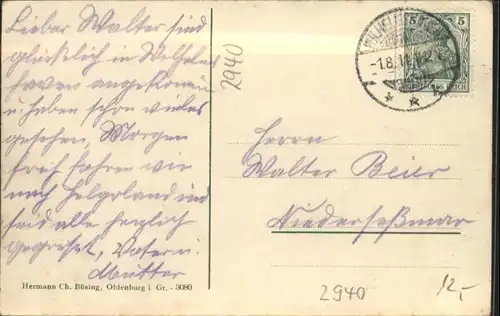 Lieber Walter sind
glücklich in Wilhelms
haven angekommen
u. haben schon vieles
gesehen, Morgen
früh fahren wir
nach Helgoland und
seid alle herzlich
gegrüßt, Vater u.
Mutter
Hermann Ch. Büsing, Oldenburg i. Gr. - 3080
2940
5 5
-1.8.
Herrn
Walter Beier
Niederseßmar
2940
12,-